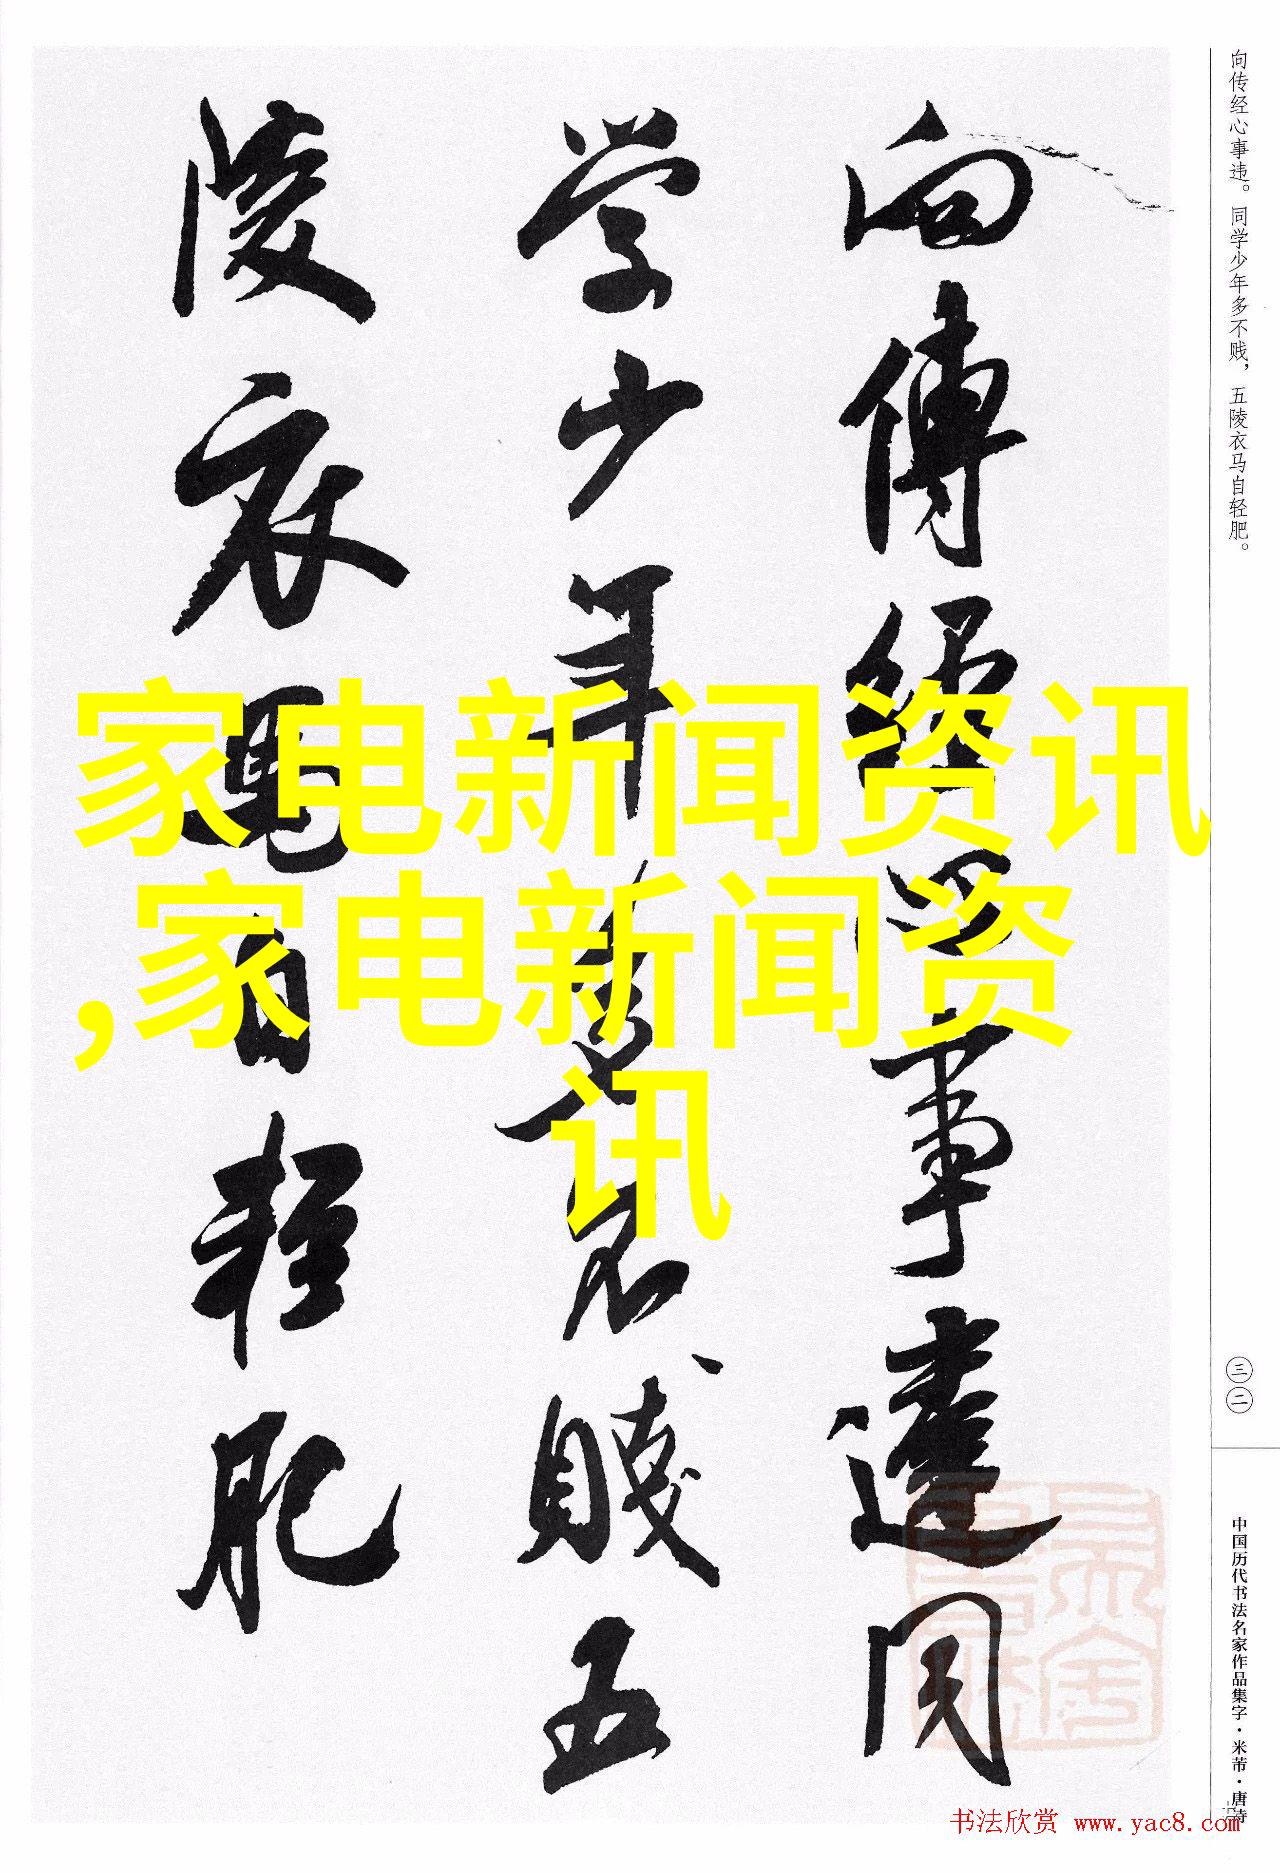 向传经心事违。同学少年多不贱，五陵衣马自轻肥。
向傳經心事違同
学少年多不賤五
陵衣馬自輕肥
家电新闻资讯
,家电新闻资
讯
三二
中国历代书法名家作品集字·米芾·唐诗
书法欣赏 www.yac8.com